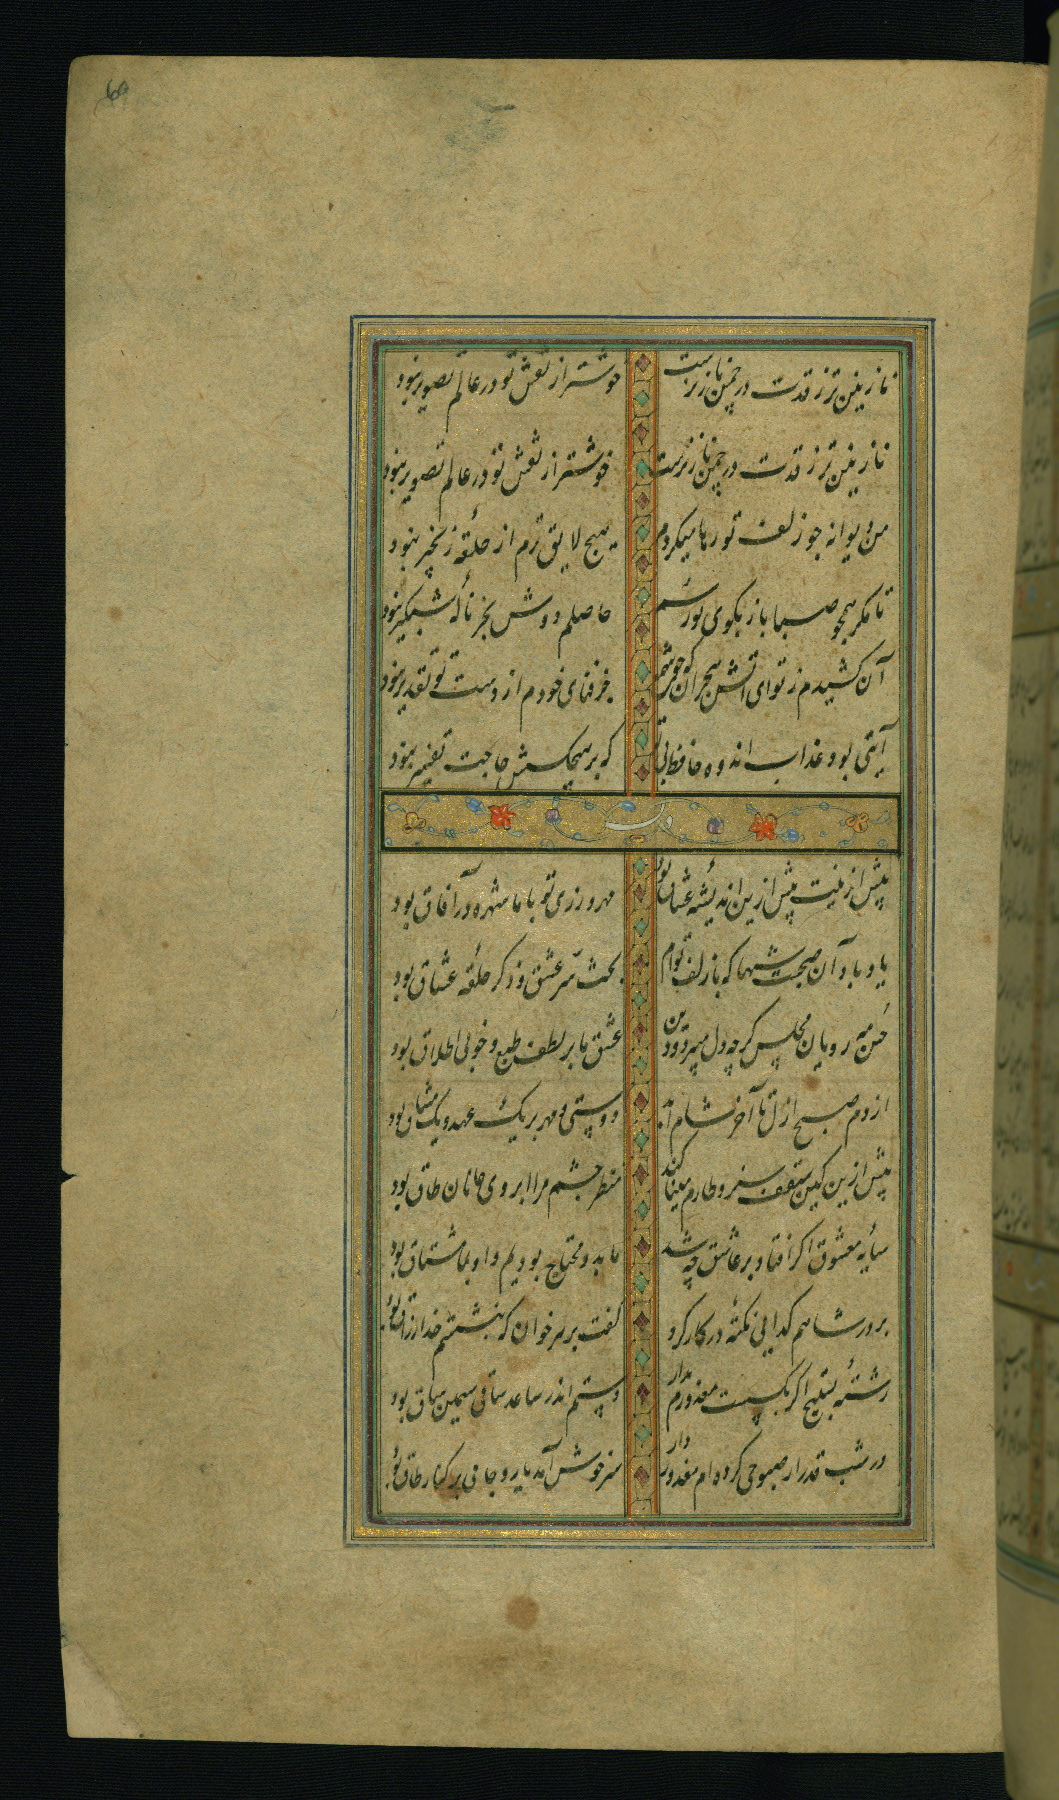 نازنین تر ز قدت در چمن ناز نرست خوشتر از نقش تو در عالم تصویر نبود
نازنین تر ز قدت در چمن ناز نرست خوشتر از نقش تو در عالم تصویر نبود
من دیوانه چو زلف تو رها میکردم هیچ لایق ترم از حلقه زنجیر نبود
تا مگر همچو صبا باز بکوی تو رسم حاصلم دوش بجز نالهٔ شبگیر نبود
آن کشیدم ز تو ای آتش هجران که چو شمع جز فنای خودم از دست تو تقدیر نبود
آیتی بود عذاب انده حافظ بی تو که بر هیچکسش حاجت تفسیر نبود
وله
پیش ازینت بیش ازین اندیشه عشاق بود مهرورزی تو با ما شهره آفاق بود
یاد باد آن صحبت شبها که با زلف توام بحث سر عشق و ذکر حلقه عشاق بود
حسن مه رویان مجلس گرچه دل میبرد و دین عشق ما بر لطف طبع و خوبی اخلاق بود
از دم صبح ازل تا آخر شام ابد دوستی و مهر بر یک عهد و یک میثاق بود
پیش ازین کین سقف سبز و طارم مینا کنند منظر چشم مرا ابروی جانان طاق بود
سایه معشوق اگر افتاد بر عاشق چه شد ما بدو محتاج بودیم و او بما مشتاق بود
بر در شاهم گدایی نکتهٔ در کار کرد گفت بر سر خوان که بنشستم خدا رزاق بود
رشتهٔ تسبیح اگر بگسست معذورم بدار دستم اندر ساعد ساقی سیمین ساق بود
در شب قدر ار صبوحی کرده ام معذور دار سرخوش آمد یار و جامی بر کنار طاق بود